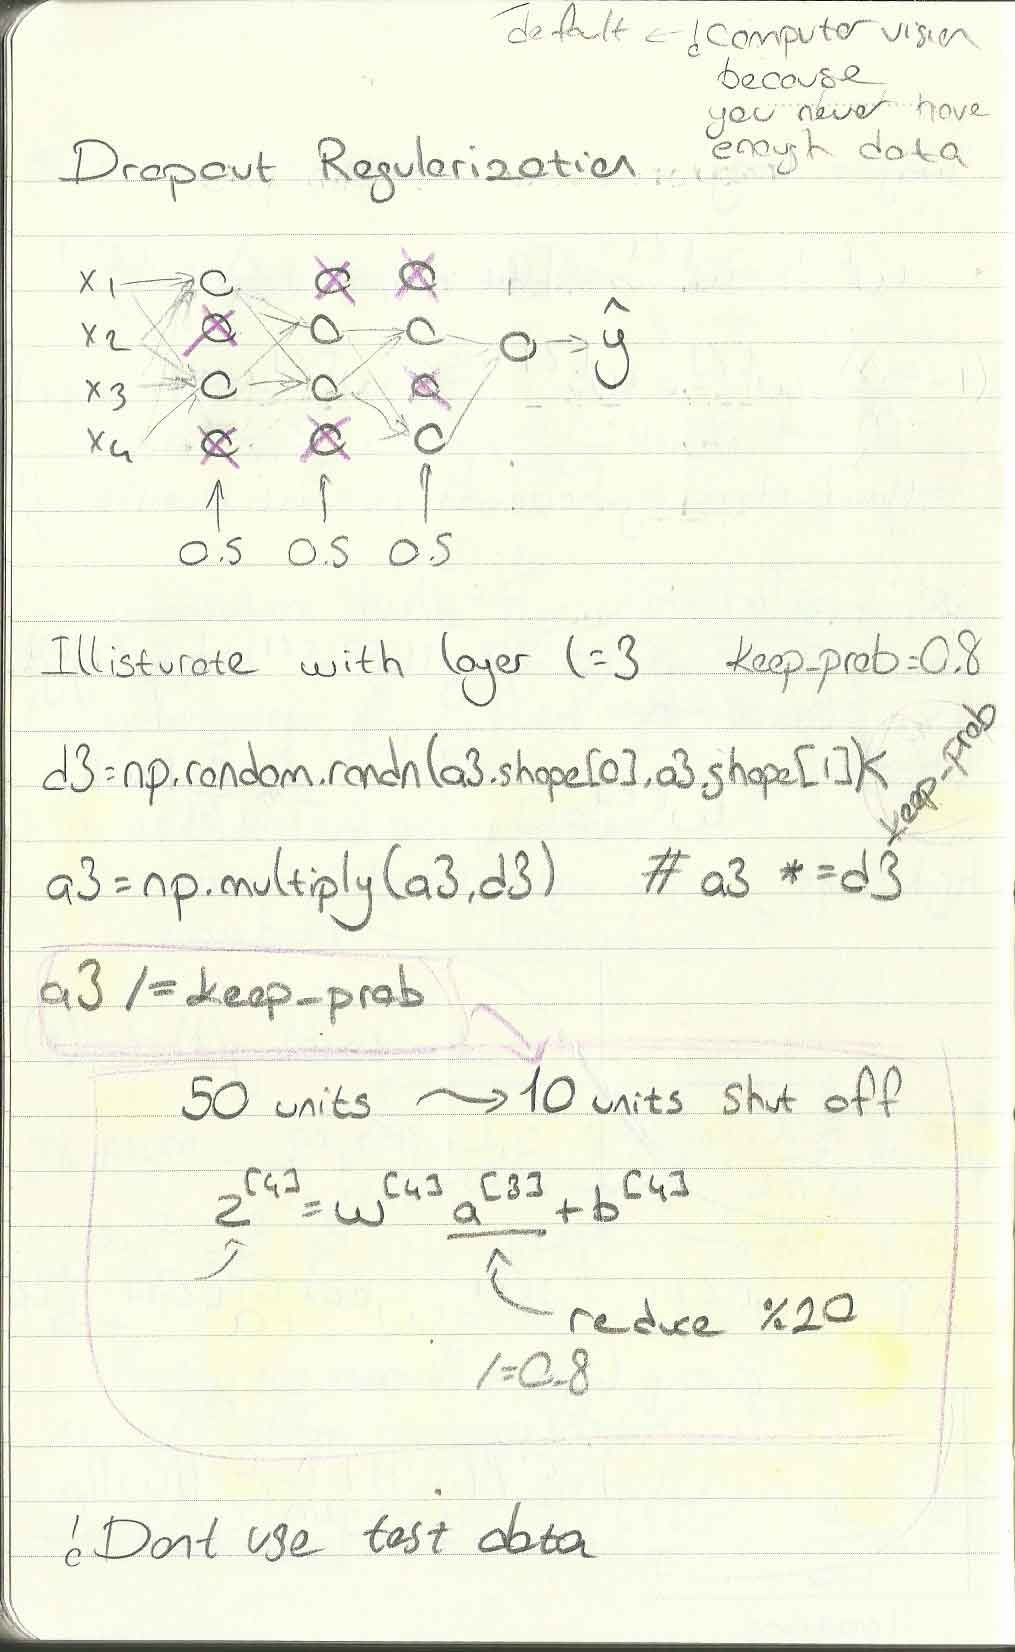 default ← ! Computer vision
because
you never have
enough data
Dropout Regularization
x1
x2
x3
x4
ŷ
0.5 0.5 0.5
Illisturate with layer l=3 keep_prob=0.8
d3=np.random.randn(a3.shape[0],a3.shape[1])<
keep_prob
a3=np.multiply(a3,d3) # a3 *=d3
a3 /= keep_prob
50 units → 10 units shut off
z[4] = w[4] a[3] + b[4]
reduce %20
/=0.8
! Dont use test data